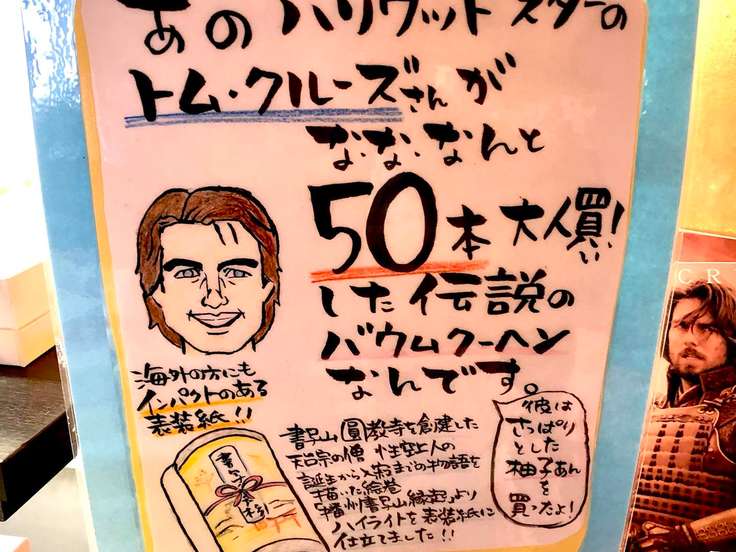 あのハリウッドスターの
トム・クルーズさんが
な・な・なんと
50本大人買い!
した伝説の
バウムクーヘン
なんです。
海外の方にも
インパクトのある
表装紙!!
書写山圓教寺を創建した
天台宗の僧 性空上人の
誕生から入寂までの物語を
描いた絵巻
播州書写山縁起より
ハイライトを表装紙に
仕立てました!!
彼は
さっぱり
とした
柚子あん
を
買ったよ!
CR